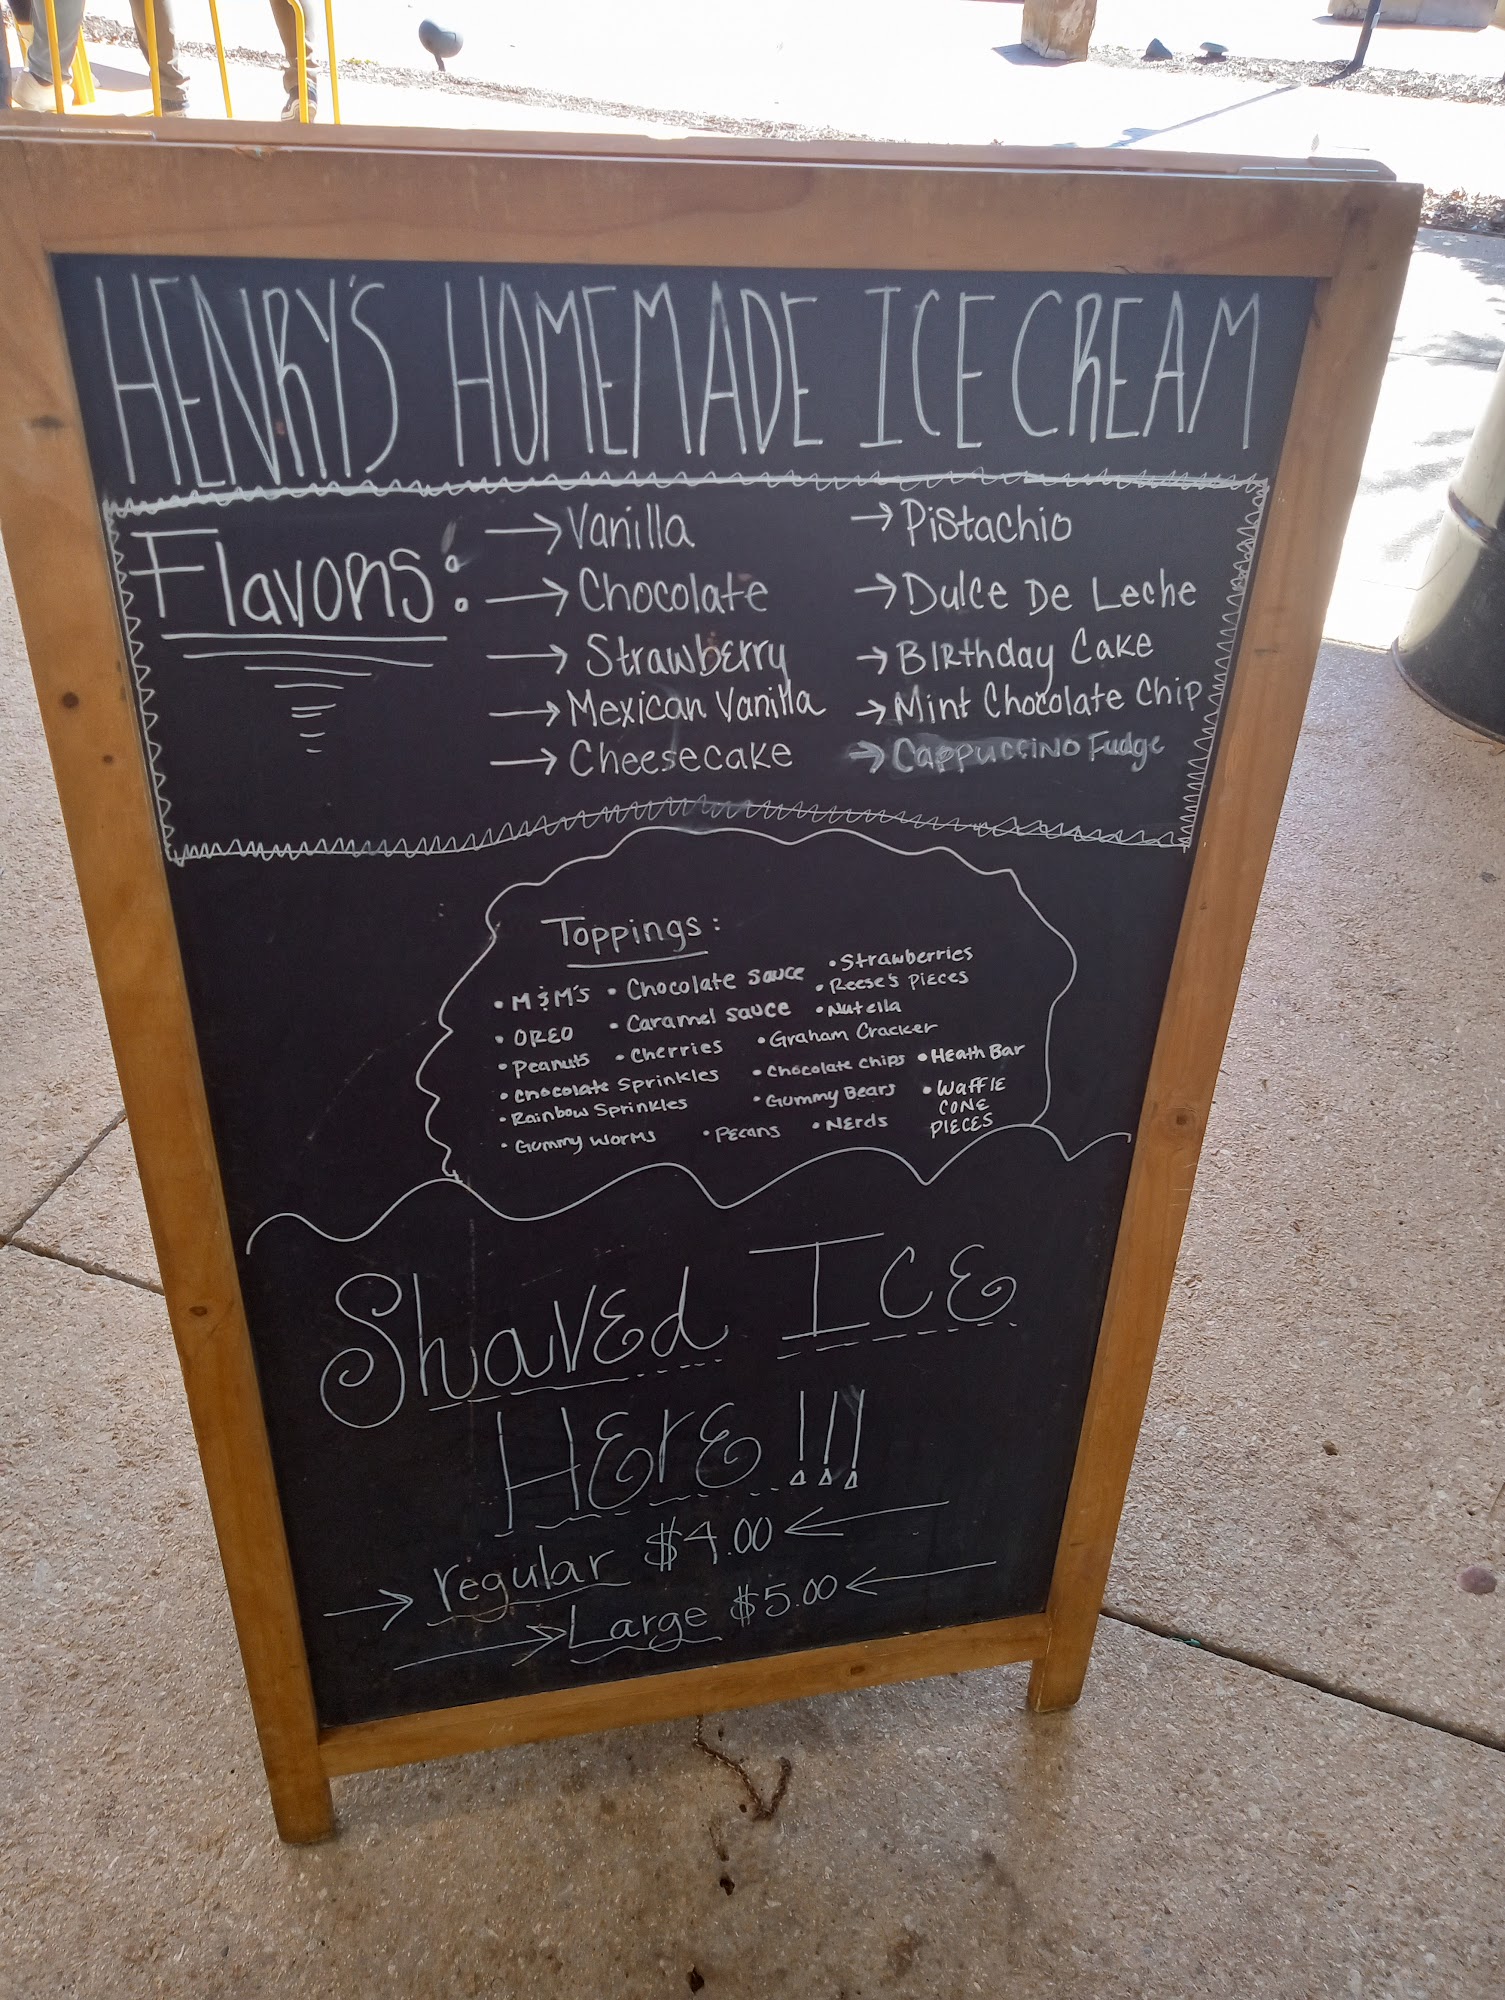 HENRY'S HOMEMADE ICE CREAM
Flavors:
→ Vanilla
→ Chocolate
→ Strawberry
→ Mexican Vanilla
→ Cheesecake
→ Pistachio
→ Dulce De Leche
→ Birthday Cake
→ Mint Chocolate Chip
→ Cappuccino Fudge
Toppings:
• M&M's • Chocolate Sauce • Strawberries
• Reese's Pieces
• OREO • Caramel Sauce • Nutella
• Peanuts • Cherries • Graham Cracker
• Chocolate Sprinkles • Chocolate Chips • Heath Bar
• Rainbow Sprinkles • Gummy Bears • Waffle
CONE
PIECES
• Gummy Worms • Pecans • Nerds
Shaved Ice
Here!!!
→ regular $4.00 ←
→ Large $5.00 ←